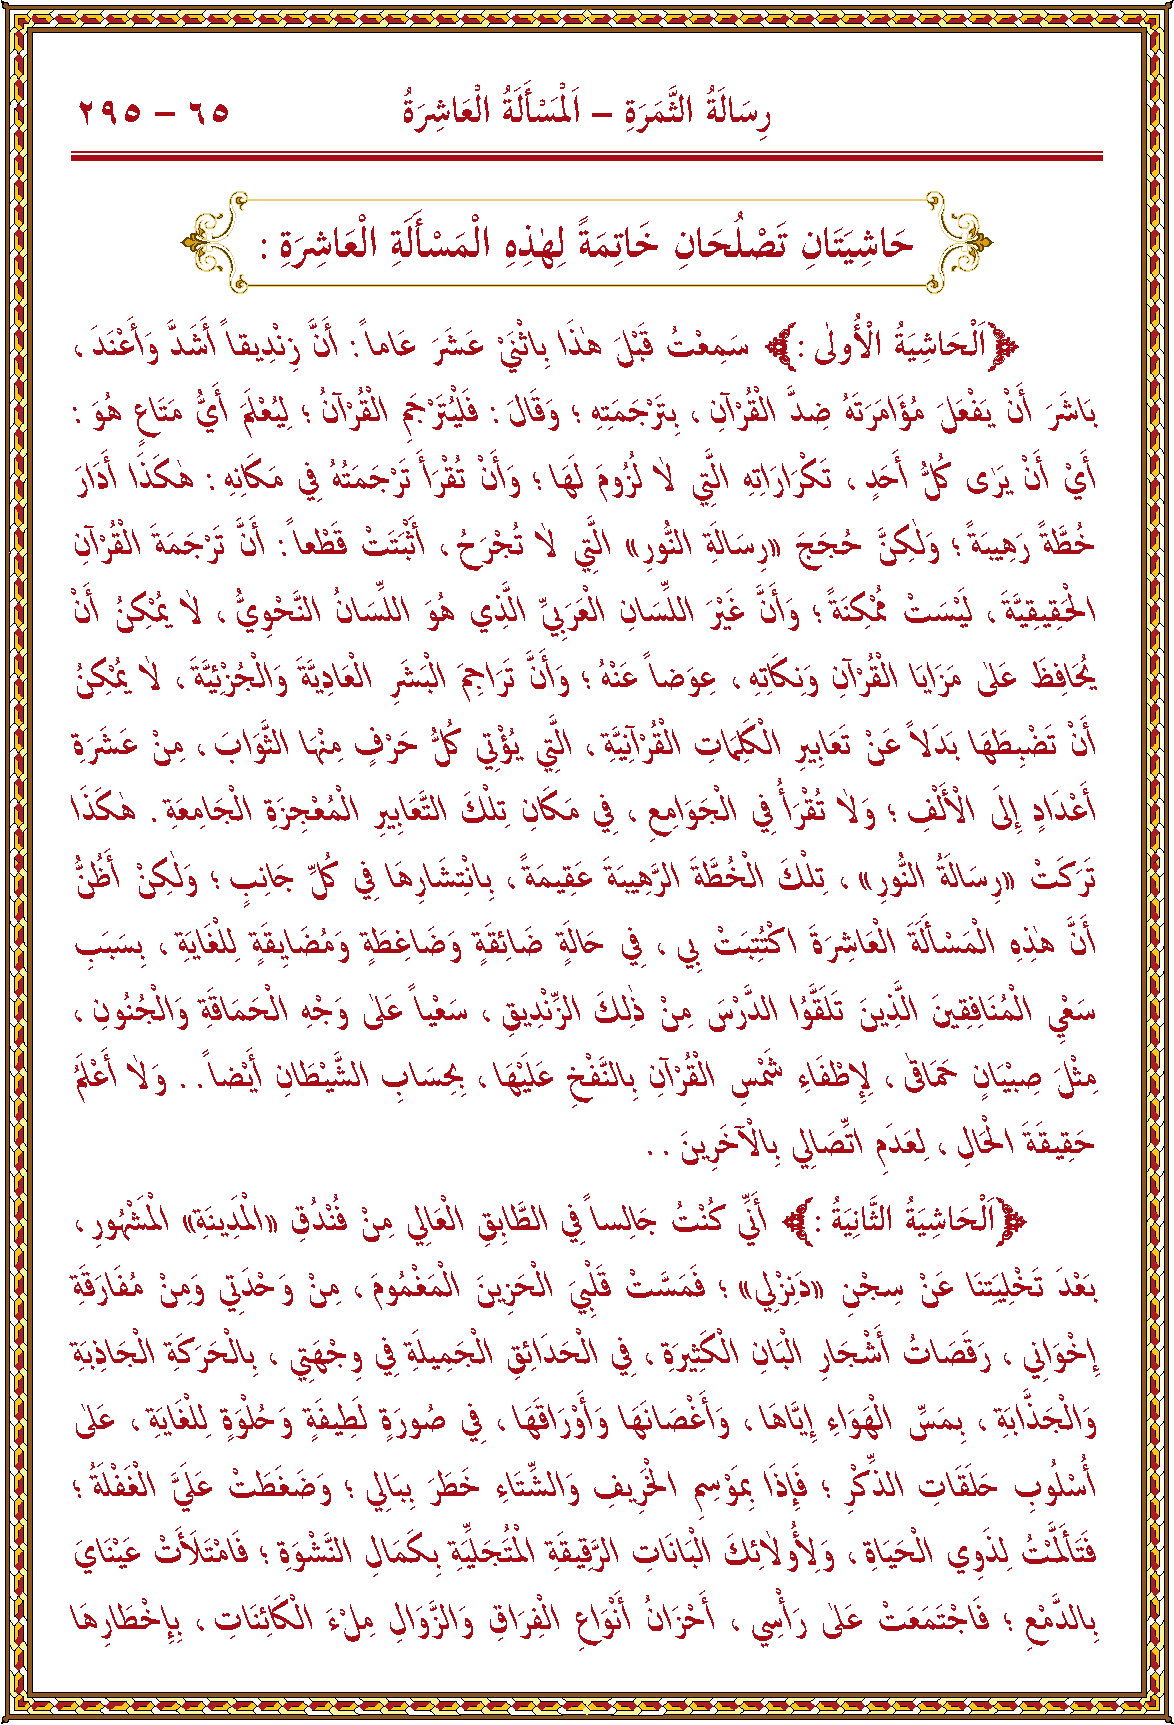 رِسَالَةُ الثَّمَرَةِ – اَلْمَسْأَلَةُ الْعَاشِرَةُ ٦٥ – ٢٩٥
حَاشِيَتَانِ تَصْلُحَانِ خَاتِمَةً لِهٰذِهِ الْمَسْأَلَةِ الْعَاشِرَةِ :
﴿اَلْحَاشِيَةُ الْأُولٰى :﴾ سَمِعْتُ قَبْلَ هٰذَا بِاثْنَيْ عَشَرَ عَاماً : أَنَّ زِنْدِيقاً أَشَدَّ وَأَعْنَدَ ،
بَاشَرَ أَنْ يَفْعَلَ مُؤَامَرَتَهُ ضِدَّ الْقُرْآنِ ، بِتَرْجَمَتِهِ ؛ وَقَالَ : فَلْيُتَرْجَمِ الْقُرْآنُ ؛ لِيُعْلَمَ أَيُّ مَتَاعٍ هُوَ :
أَيْ أَنْ يَرٰى كُلُّ أَحَدٍ ، تَكْرَارَاتِهِ الَّتِي لَا لُزُومَ لَهَا ؛ وَأَنْ تُقْرَأَ تَرْجَمَتُهُ فِي مَكَانِهِ : هٰكَذَا أَدَارَ
خُطَّةً رَهِيبَةً ؛ وَلٰكِنَّ حُجَجَ «رِسَالَةِ النُّورِ» الَّتِي لَا تُجْرَحُ ، أَثْبَتَتْ قَطْعاً : أَنَّ تَرْجَمَةَ الْقُرْآنِ
الْحَقِيقِيَّةَ ، لَيْسَتْ مُمْكِنَةً ؛ وَأَنَّ غَيْرَ اللِّسَانِ الْعَرَبِيِّ الَّذِي هُوَ اللِّسَانُ النَّحْوِيُّ ، لَا يُمْكِنُ أَنْ
يُحَافِظَ عَلٰى مَزَايَا الْقُرْآنِ وَنِكَاتِهِ ، عِوَضاً عَنْهُ ؛ وَأَنَّ تَرَاجِمَ الْبَشَرِ الْعَادِيَّةَ وَالْجُزْئِيَّةَ ، لَا يُمْكِنُ
أَنْ تَضْبِطَهَا بَدَلاً عَنْ تَعَابِيرِ الْكَلِمَاتِ الْقُرْآنِيَّةِ ، الَّتِي يُؤْتِي كُلُّ حَرْفٍ مِنْهَا الثَّوَابَ ، مِنْ عَشَرَةِ
أَعْدَادٍ إِلَى الْأَلْفِ ؛ وَلَا تُقْرَأُ فِي الْجَوَامِعِ ، فِي مَكَانِ تِلْكَ التَّعَابِيرِ الْمُعْجِزَةِ الْجَامِعَةِ . هٰكَذَا
تَرَكَتْ «رِسَالَةُ النُّورِ» ، تِلْكَ الْخُطَّةَ الرَّهِيبَةَ عَقِيمَةً ، بِانْتِشَارِهَا فِي كُلِّ جَانِبٍ ؛ وَلٰكِنْ أَظُنُّ
أَنَّ هٰذِهِ الْمَسْأَلَةَ الْعَاشِرَةَ اكْتُتِبَتْ بِي ، فِي حَالَةٍ ضَائِقَةٍ وَضَاغِطَةٍ وَمُضَايِقَةٍ لِلْغَايَةِ ، بِسَبَبِ
سَعْيِ الْمُنَافِقِينَ الَّذِينَ تَلَقَّوُا الدَّرْسَ مِنْ ذٰلِكَ الزِّنْدِيقِ ، سَعْياً عَلٰى وَجْهِ الْحَمَاقَةِ وَالْجُنُونِ ،
مِثْلَ صِبْيَانٍ حَمَاقٰى ، لِإِطْفَاءِ شَمْسِ الْقُرْآنِ بِالنَّفْخِ عَلَيْهَا ، بِحِسَابِ الشَّيْطَانِ أَيْضاً . . وَلَا أَعْلَمُ
حَقِيقَةَ الْحَالِ ، لِعَدَمِ اتِّصَالِي بِالْآخَرِينَ . .
﴿اَلْحَاشِيَةُ الثَّانِيَةُ :﴾ أَنِّي كُنْتُ جَالِساً فِي الطَّابِقِ الْعَالِي مِنْ فُنْدُقِ «الْمَدِينَةِ» الْمَشْهُورِ ،
بَعْدَ تَخْلِيَتِنَا عَنْ سِجْنِ «دَنِزْلِي» ؛ فَمَسَّتْ قَلْبِيَ الْحَزِينَ الْمَغْمُومَ ، مِنْ وَحْدَتِي وَمِنْ مُفَارَقَةِ
إِخْوَانِي ، رَقَصَاتُ أَشْجَارِ الْبَانِ الْكَثِيرَةِ ، فِي الْحَدَائِقِ الْجَمِيلَةِ فِي وِجْهَتِي ، بِالْحَرَكَةِ الْجَاذِبَةِ
وَالْجَذَّابَةِ ، بِمَسِّ الْهَوَاءِ إِيَّاهَا ، وَأَغْصَانَهَا وَأَوْرَاقَهَا ، فِي صُورَةٍ لَطِيفَةٍ وَحُلْوَةٍ لِلْغَايَةِ ، عَلٰى
أُسْلُوبِ حَلَقَاتِ الذِّكْرِ ؛ فَإِذَا بِمَوْسِمِ الْخَرِيفِ وَالشِّتَاءِ خَطَرَ بِبَالِي ؛ وَضَغَطَتْ عَلَيَّ الْغَفْلَةُ ؛
فَتَأَلَّمْتُ لِذَوِي الْحَيَاةِ ، وَلِأُولَائِكَ الْبَانَاتِ الرَّقِيقَةِ الْمُتَجَلِّيَةِ بِكَمَالِ النَّشْوَةِ ؛ فَامْتَلَأَتْ عَيْنَايَ
بِالدَّمْعِ ؛ فَاجْتَمَعَتْ عَلٰى رَأْسِي ، أَحْزَانُ أَنْوَاعِ الْفِرَاقِ وَالزَّوَالِ مِلْءَ الْكَائِنَاتِ ، بِإِخْطَارِهَا